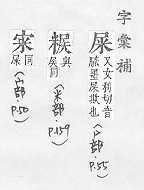 字彙補
屎 又女利切音
膩墨屎欺也
(尸部, p.55)
與屎同
(米部, p.159)
同屎
(宀部, p.50)